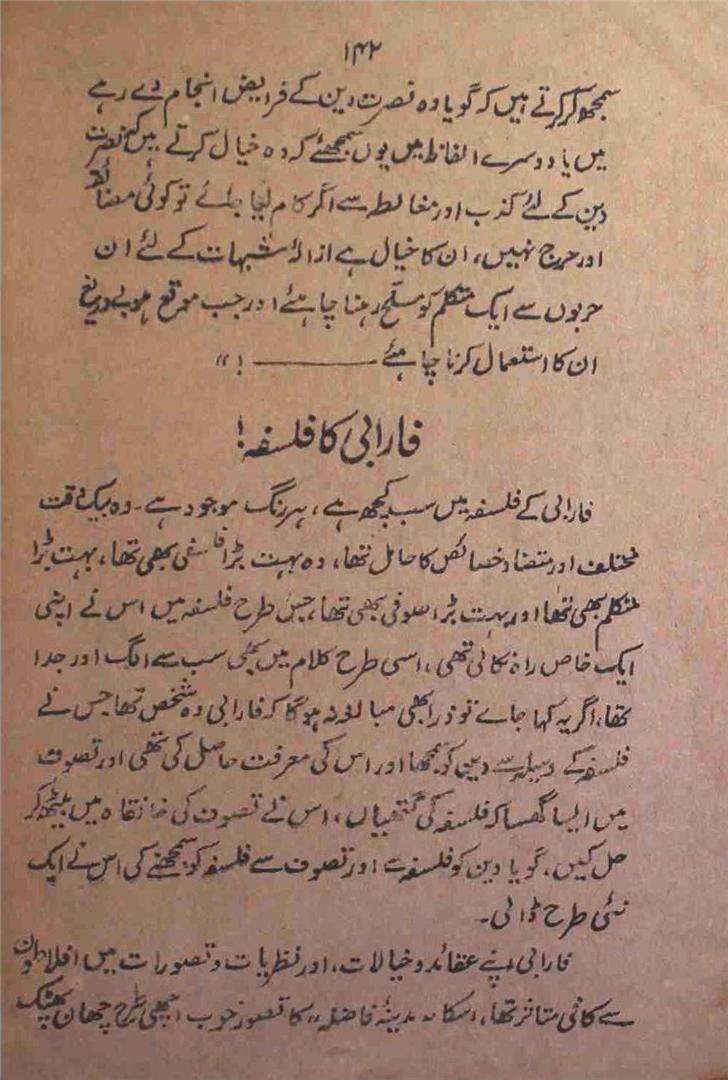 ۱۴۲
سمجھ کر کرتے ہیں کہ گویا وہ نصرت دین کے فرایض انجام دے رہے
ہیں یا دوسرے الفاظ میں یوں سمجھئے کہ وہ خیال کرتے ہیں کہ نصرت
دین کے لئے کذب اور مغالطہ سے اگر کام لیا جائے تو کوئی مضائقہ
اور حرج نہیں، ان کا خیال ہے ازالۂ شبہات کے لئے ان
حربوں سے ایک متکلم کو مسلح رہنا چاہئے اور جب موقع ہو بے دریغ
ان کا استعمال کرنا چاہئے ——— !"
فارابی کا فلسفہ!
فارابی کے فلسفہ میں سب کچھ ہے، ہر رنگ موجود ہے۔ وہ بیک وقت
مختلف اور متضاد خصائص کا حامل تھا، وہ بہت بڑا فلسفی بھی تھا، بہت بڑا
متکلم بھی تھا اور بہت بڑا صوفی بھی تھا، جس طرح فلسفہ میں اس نے اپنی
ایک خاص راہ نکالی تھی، اسی طرح کلام میں بھی سب سے الگ اور جدا
تھا، اگر یہ کہا جاے تو ذرا بھی مبالغہ نہ ہوگا کہ فارابی وہ شخص تھا جس نے
فلسفہ کے وسیلہ سے دین کو سمجھا اور اس کی معرفت حاصل کی تھی اور تصوف
میں ایسا گھسا کہ فلسفہ کی گتھیاں، اس نے تصوف کی خانقاہ میں بیٹھ کر
حل کیں، گویا دین کو فلسفہ سے اور تصوف سے فلسفہ کو سمجھنے کی اس نے ایک
نئی طرح ڈالی۔
فارابی اپنے عقائد و خیالات، اور نظریات و تصورات میں افلاطون
سے کافی متاثر تھا، اسکا "مدینۂ فاضلہ" کا تصور خوب اچھی طرح چھان پھٹک